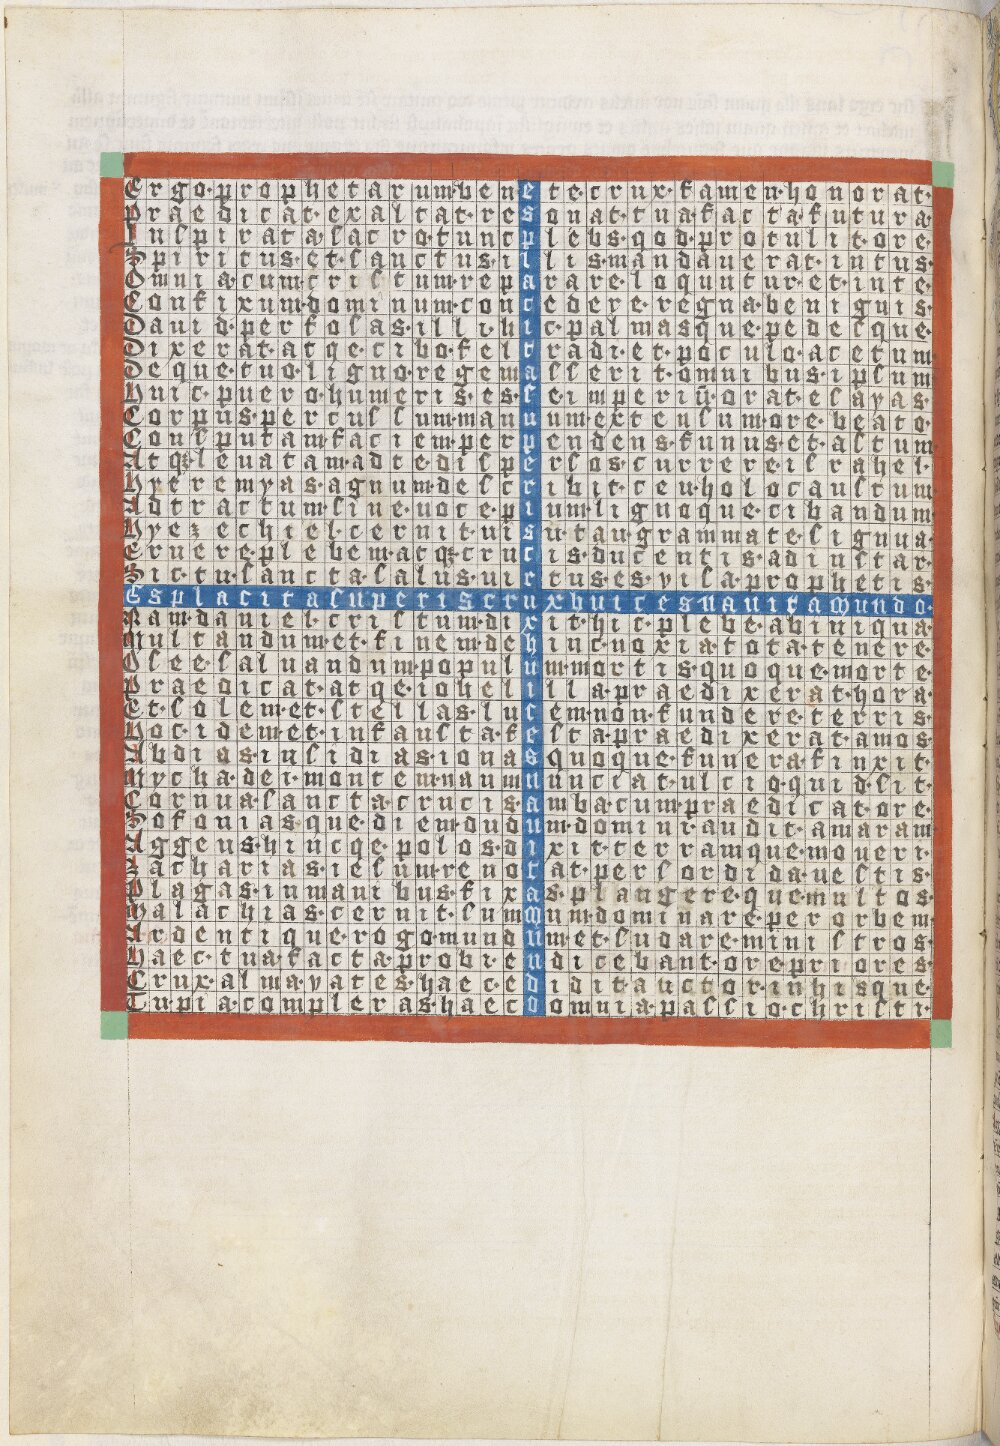 Ergo prophetarum bene te crux famen honorat
Praedicat exaltat resonat tua facta futura
Inspirata sacro tunc plebs qod protulit ore
Spiritus et sanctus illis mandauerat intus
Omnia cum cristum reparare loquntur et in te
Confixum dominum concedere regna benignis
Dauid per folas illi hic palmasque pedesque
Dixerat atqe cibo fel tradi et poculo acetum
Deque tuo ligno regem asserit omnibus ipsum
Huic puero humeris esse imperiū orat esayas
Corpus percussum manuum extensum ore beato
Consputam faciem perpendens funus et astum
Atqz leuatam ad te dispersos currere israhel
Hyeremyas agnum describit ceu holocaustum
Adtractum sine uoce pium lignoque cibandum
Hyezechiel cernit uisu tau grammate signua
Eruere plebem atqz crucis ducentis ad instar
Sic tu sancta salus uirtus es yisa prophetis
Es placita superis crux huic es nauita mundo
Nam daniel cristum dixit hic plebe ab iniqua
Multandum et finem de hinc noxia tota tenere
Osee saluandum popul ummortis quoque morte
Praedicat atqe iohel illa praedixerat hora
Et solem et stellas lucem non fundere terris
Hoc idem et infausta festa praedixerat amos
Abdias insidias iona squoque funera finxit
Mycha dei montem naum nunciat ultio quid sit
Cornua sancta crucis ambacum praedicat ore
Sofonias que diem dudum domini audit amaram
Aggeus hincqe polos dixit terramque moueri
Zacharias iesum reuocat per sordida uestis
Plagas in manibus fixas plangere que multos
Malachias cernit summum dominare per orbem
Ardentique rogo mundum et sudare ministros
Haec tua facta probi endicebant ore priores
Crux alma yates haec edidit auctor in hisque
Tu pia compleras haec o omnia passio christi